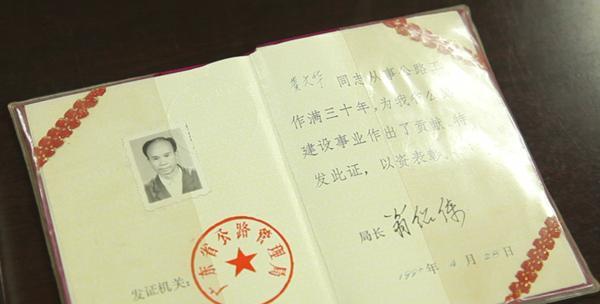 发证机关：
广东省公路管理局
同志从事公路工
作满三十年，为我省公路
建设事业作出了贡献，特
发此证，以资表彰。
局长
年4月28日